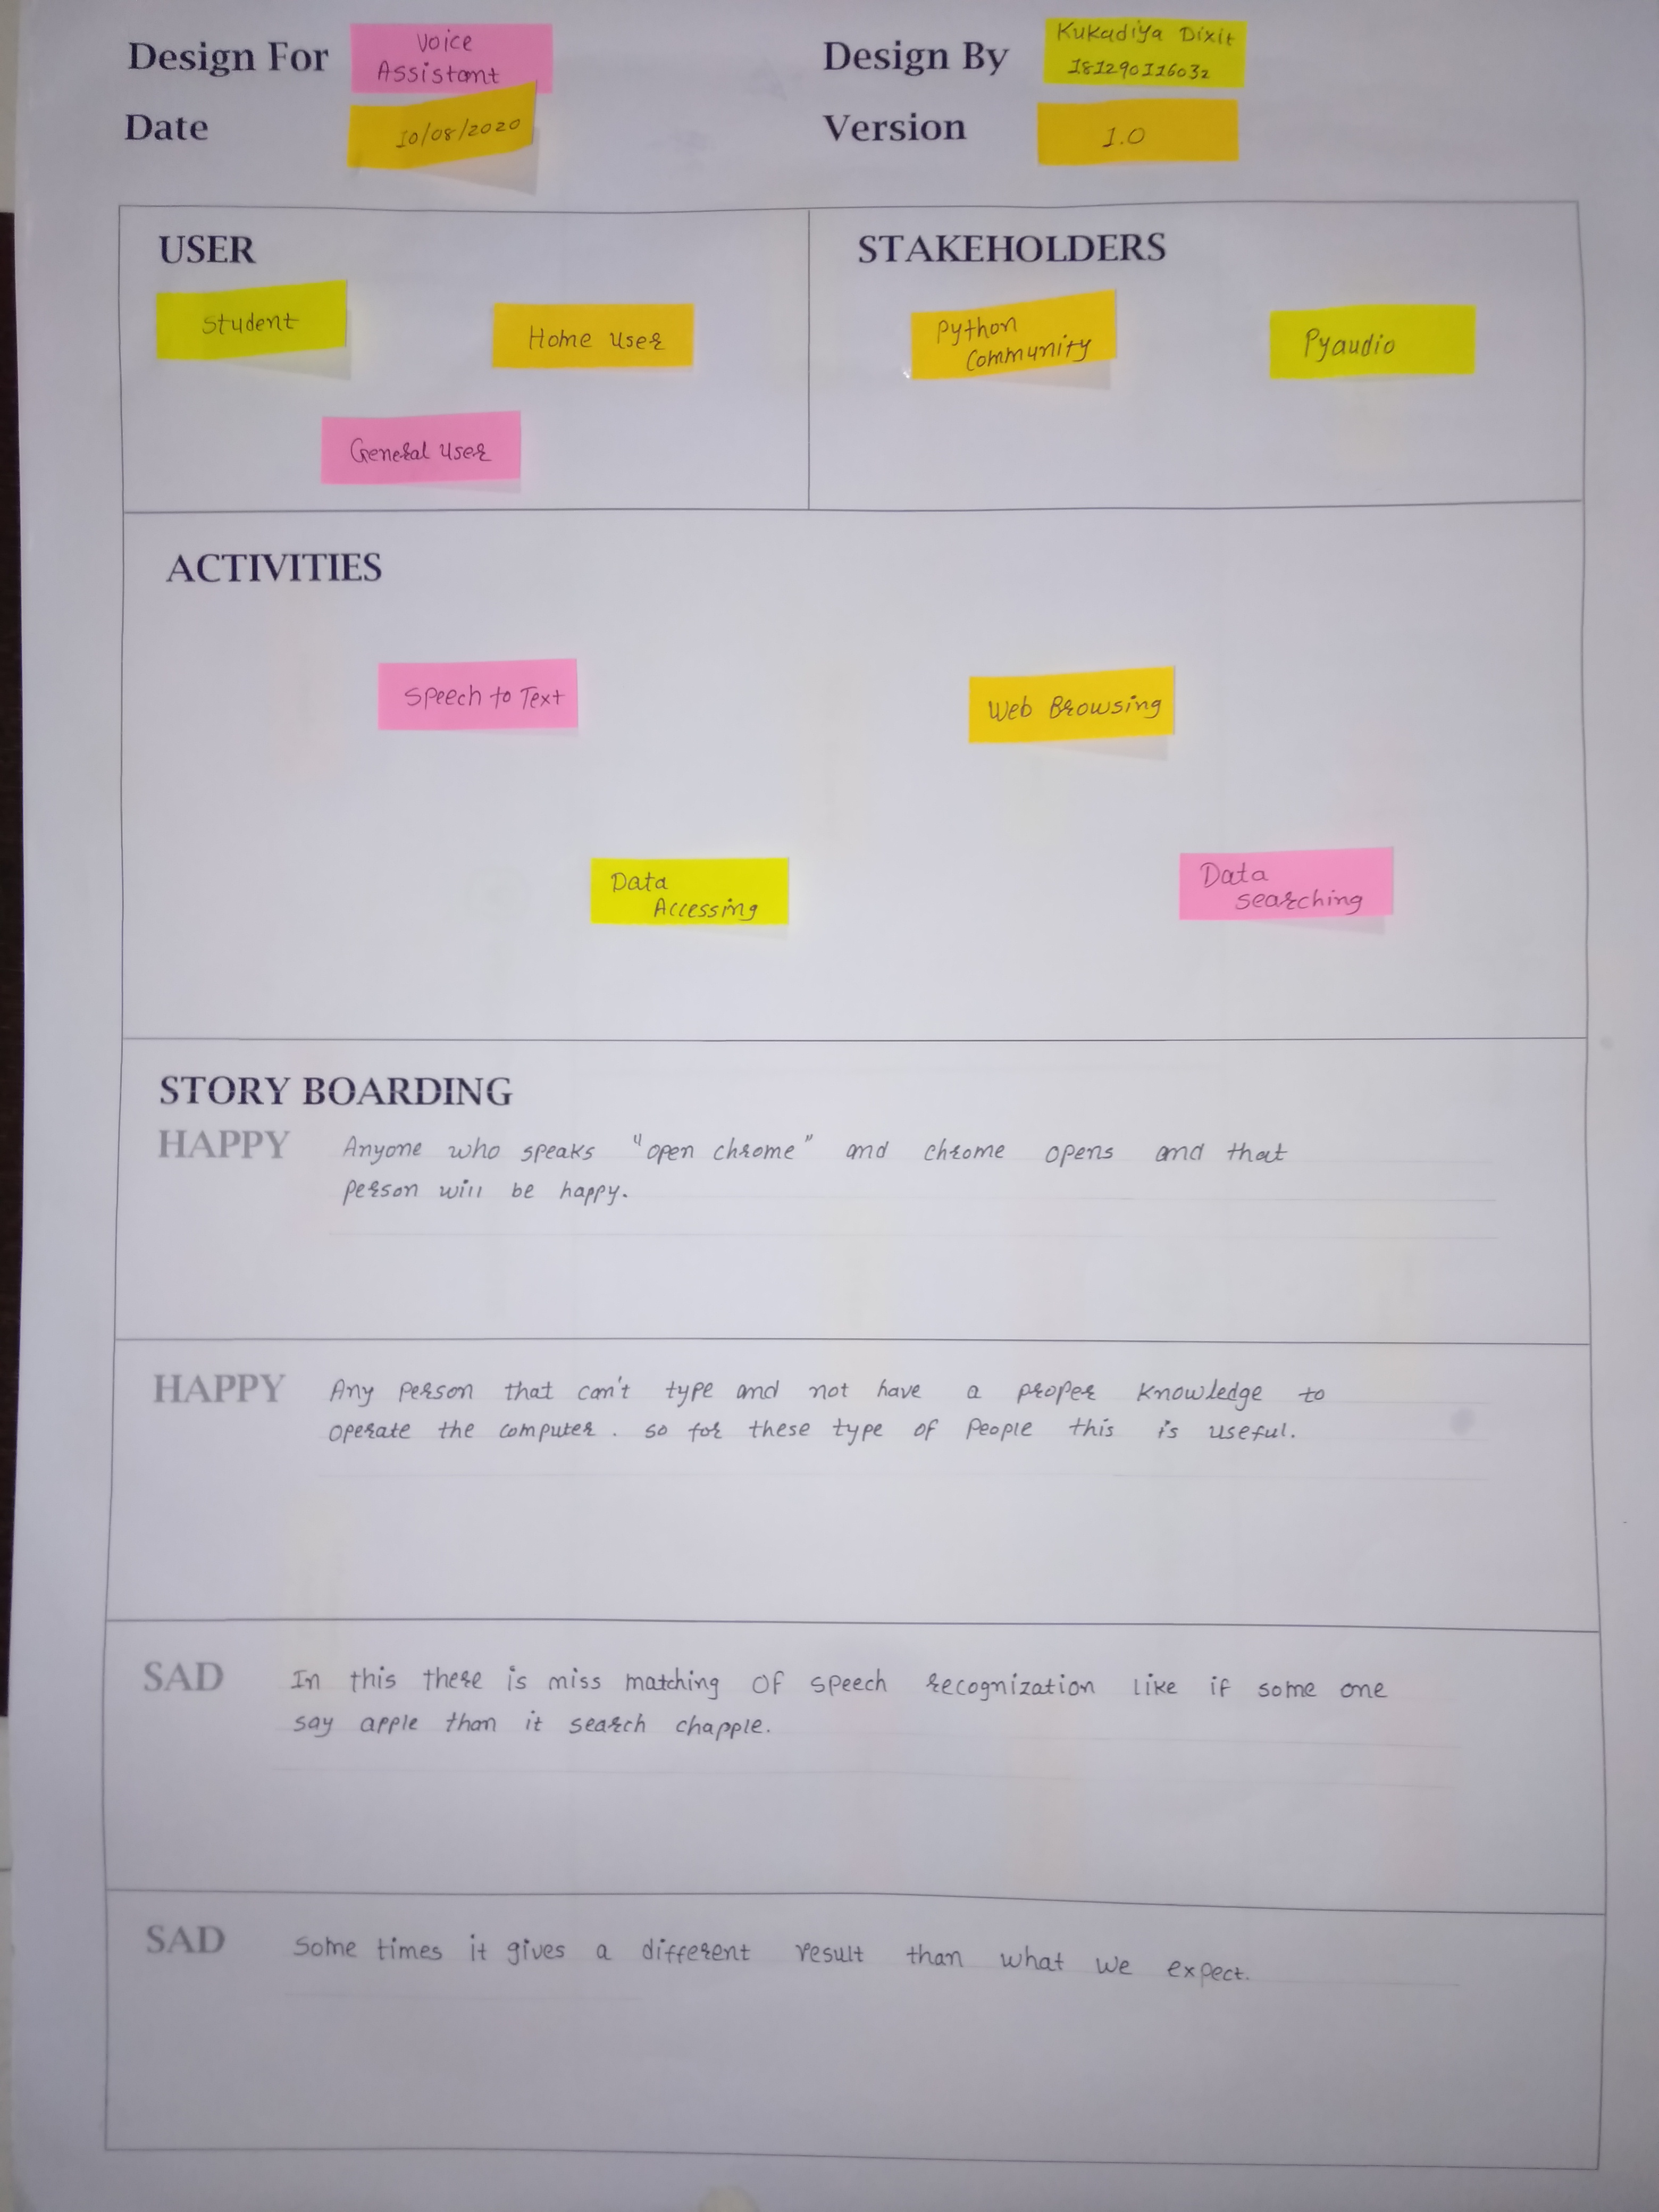 Design For
Voice
Assistant
Design By
Kukadiya Dixit
181290116032
Date
10/08/2020
Version
1.0
USER
Student
Home User
General User
STAKEHOLDERS
Python
Community
Pyaudio
ACTIVITIES
Speech to Text
Web Browsing
Data
Accessing
Data
searching
STORY BOARDING
HAPPY
Anyone who speaks "open chrome" and chrome opens and that
person will be happy.
HAPPY
Any Person that can't type and not have a proper knowledge to
operate the computer. so for these type of People this is useful.
SAD
In this there is miss matching of speech recognization like if some one
say apple than it search chapple.
SAD
Some times it gives a different result than what we expect.